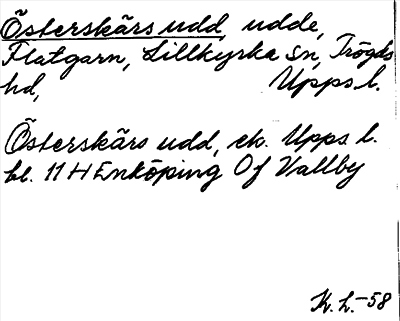 Österskärs udd, udde,
Flatgarn, Lillkyrka sn, Trögds
hd, Upps. l.
Österskärs udd, ek. Upps. l.
bl. 11 H Enköping Of Vallby
K. L. -58